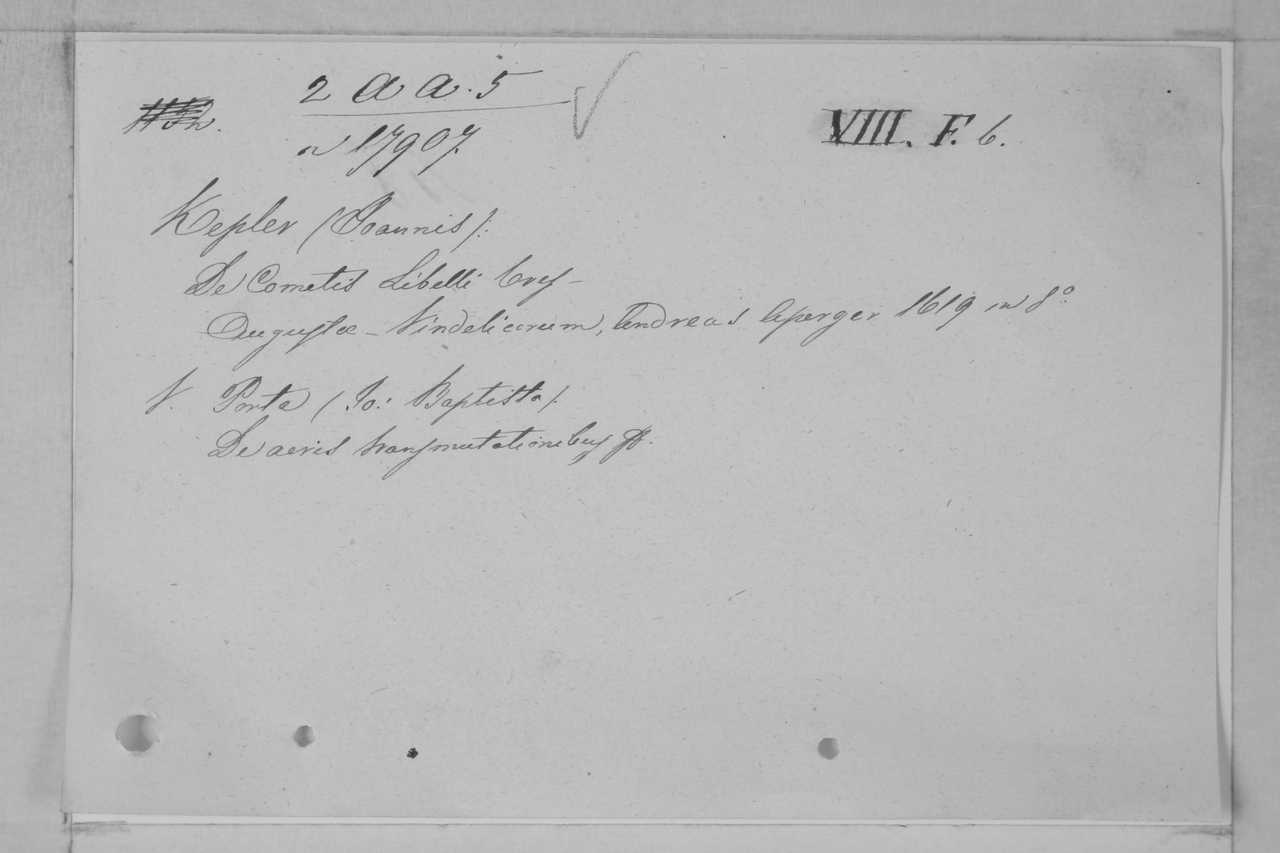 2 a a. 5
VIII. F. 6.
n 17907.
Kepler (Joannis).
De Cometis Libelli tres
Augustæ-Vindelicorum, Andreas Aperger 1619 in 8º
V. Porta (Jo: Baptista)
De aeris transmutationibus